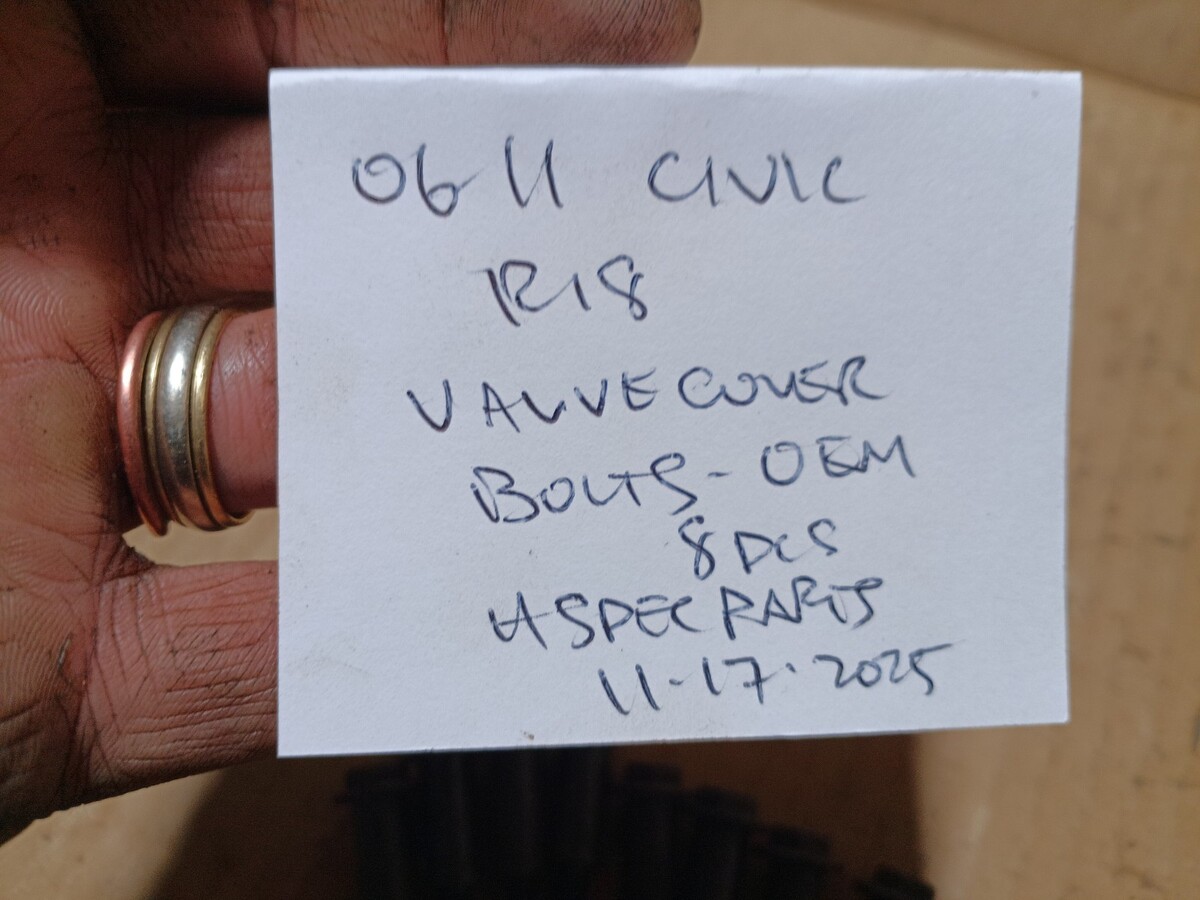 06 11 CIVIC
R18
VALVE COVER
BOLTS - OEM
8 PCS
HSPEC PARTS
11-17-2025